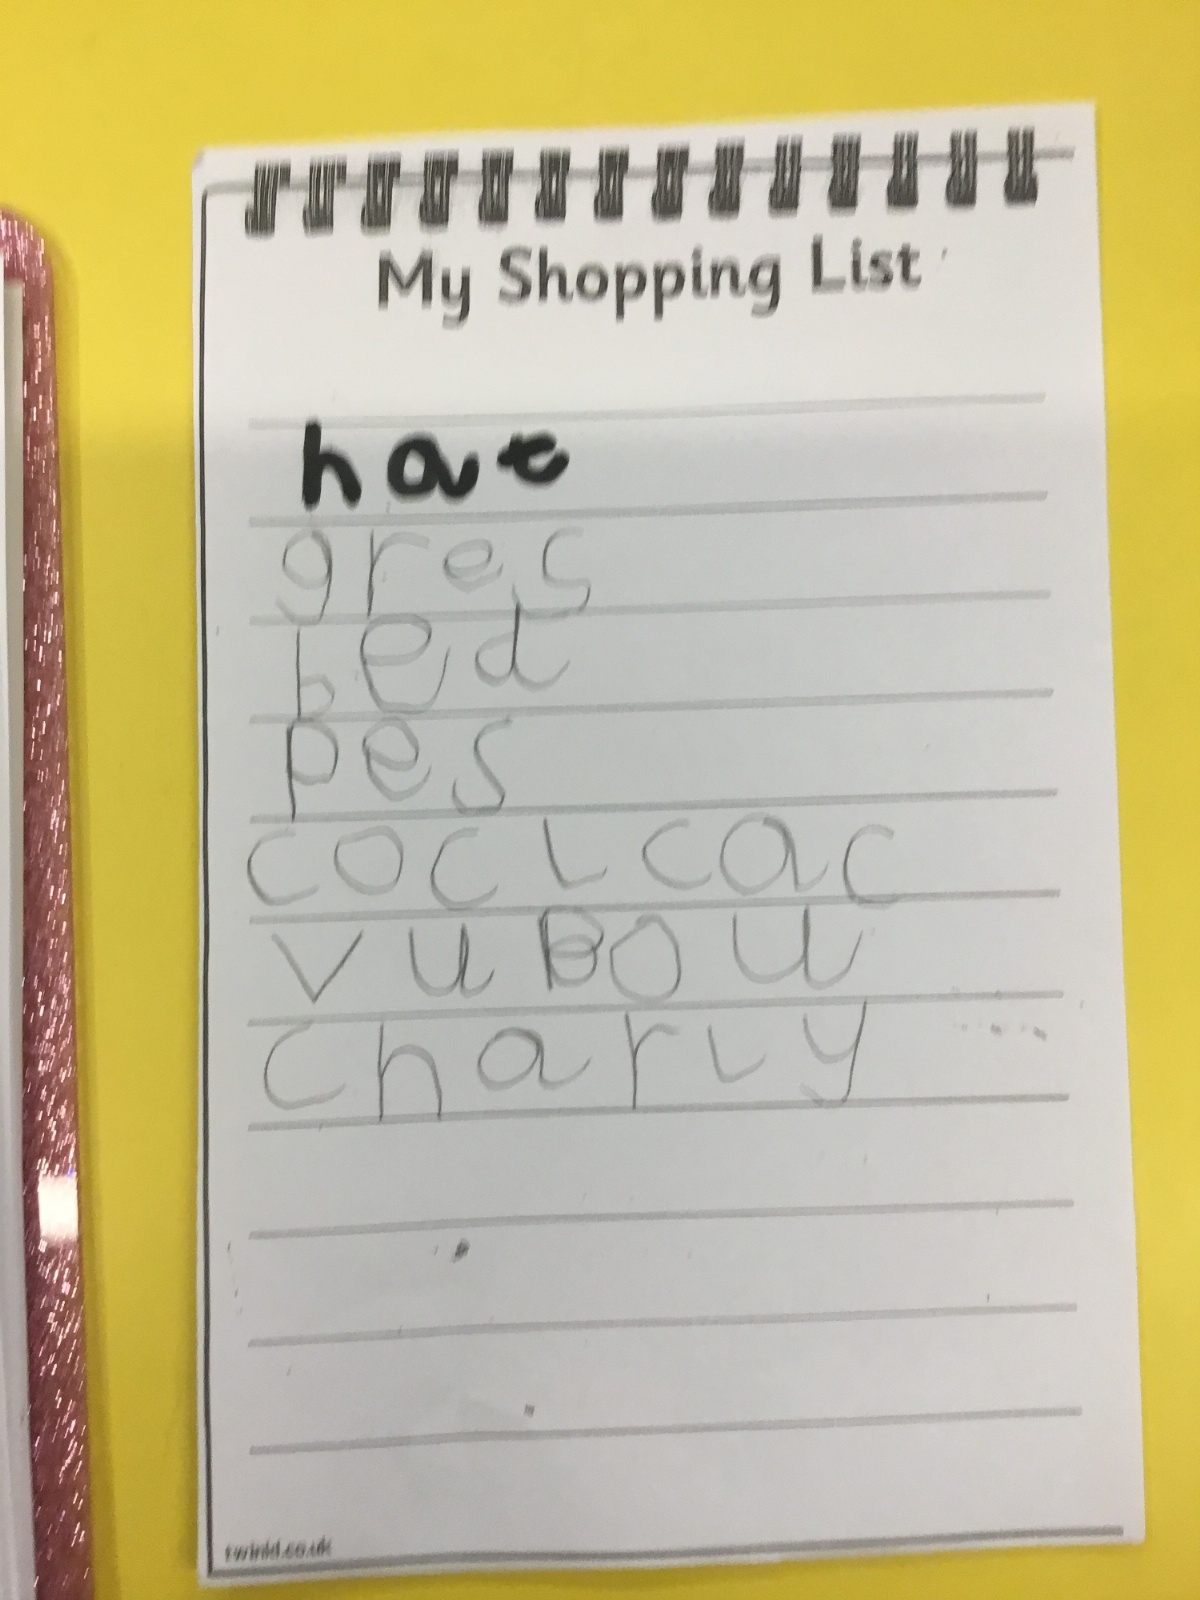 My Shopping List
hat
gres
bed
pes
coclcac
vuBou
charly
twinkl.co.uk